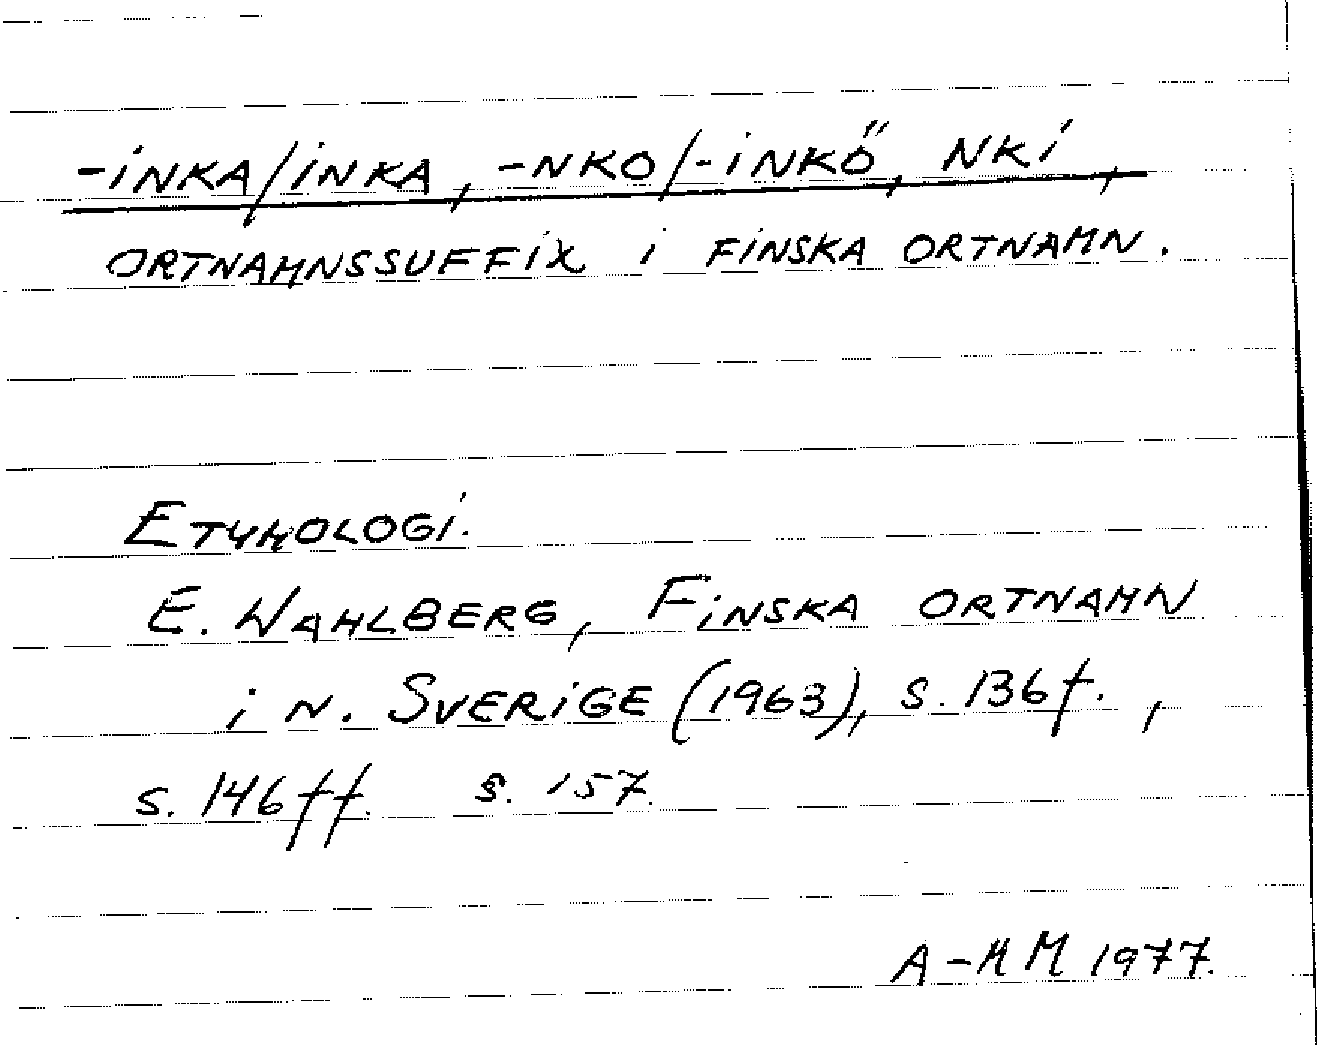 -INKA/INKA, -NKO/-INKÖ, NKI,
ORTNAMNSSUFFIX I FINSKA ORTNAMN.
ETYMOLOGI.
E. WAHLBERG, FINSKA ORTNAMN
i N. SVERIGE (1963), s. 136f. ,
s. 146ff. s. 157.
A-MM 1977.